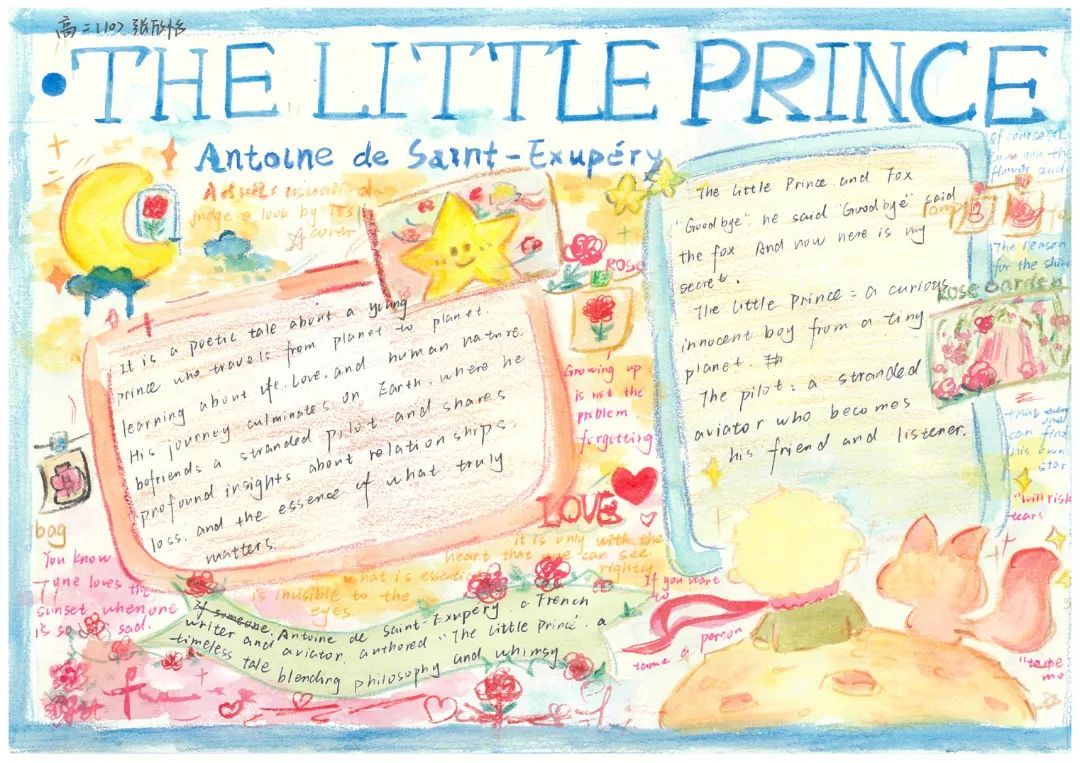 高二(10) 张欣怡
THE LITTLE PRINCE
Antoine de Saint-Exupéry
Adults usually
judge a look by its
cover
It is a poetic tale about a young
prince who travels from planet to planet.
learning about life. Love. and human nature.
His journey culminates on Earth, where he
befriends a stranded pilot and shares
profound insights about relationships.
loss. and the essence of what truly
matters.
ROSE
Growing up
is not the
problem
forgetting
LOVE
it is only with the
heart that one can see
rightly
what is essential
is invisible to the
eyes.
bag
You know
one loves the
sunset when one
is so sad.
If someone, Antoine de Saint-Exupery. a French
writer and aviator. authored "The Little Prince". a
timeless tale blending philosophy and whimsy
The Little Prince and Fox
"Goodbye". he said "Goodbye" said
the fox And now here is my
secret.
The Little Prince: a curious
innocent boy from a tiny
planet.
The pilot: a stranded
aviator who becomes
his friend and listener.
of course I
love
flower and
The reason
for the
Rose Garden
that
can find
his own
star
"will risk
tears
If you want
to
tame a person
"tame
me